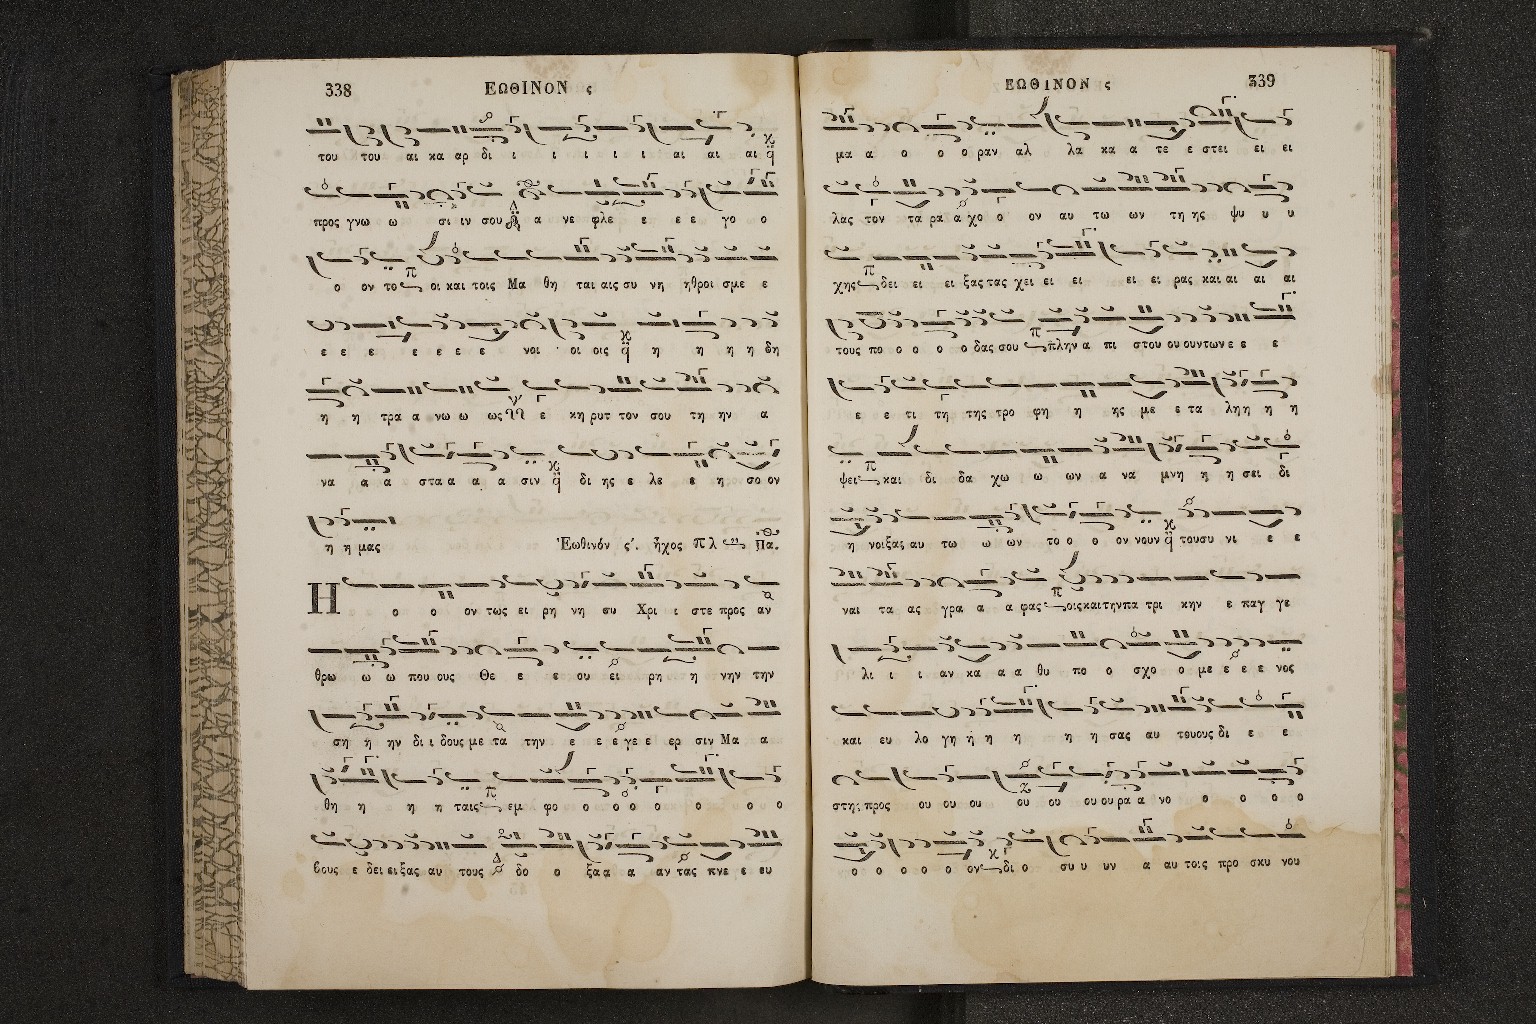 338
ΕΩΘΙΝΟΝ ς
του του αι κα αρ δι ι ι ι ι ι ι αι αι αι
προς γνω ω σι ιν σου α νε φλε ε ε ε γο ο
ο ον το οι και τοις Μα θη ται αις συ νη ηθροι σμε ε
ε ε ε ε ε ε ε νοι οι οις η η η η δη
η η τρα α νω ω ως ε κη ρυτ τον σου τη ην α
να α α στα α α α σιν δι ης ε λε ε η σο ον
η η μας Ἑωθινόν ς΄. ἦχος πλ Πα.
Η ο ο ον τως ει ρη νη συ Χρι ι στε προς αν
θρω ω ω που ους Θε ε ε ου ει ρη η νην την
ση η ην δι ι δους με τα την ε ε ε γε ε ερ σιν Μα α
θη η η η ταις εμ φο ο ο ο ο ο ο ο
βους ε δει ειξας αυ τους δο ο ξα α α αν τας πνε ε ευ
ΕΩΘΙΝΟΝ ς
339
μα α ο ο ο ραν αλ λα κα α τε ε στει ει ει
λας τον τα ρα α χο ο ον αυ τω ων τη ης ψυ υ υ
χης δει ει ει ξας τας χει ει ει ει ει ρας και αι αι αι
τους πο ο ο ο ο δας σου πλην α πι στου ου ουντων ε ε ε
ε ε τι τη της τρο φη η ης με ε τα λη η η η
ψει και δι δα χω ω ων α να μνη η η σει δι
η νοιξας αυ τω ω ων το ο ο ον νουν του συ νι ε ε
ναι τα ας γρα α α φας οις και την πα τρι κην ε παγ γε
λι ι ι αν κα α α θυ πο ο σχο ο με ε ε ε νος
και ευ λο γη η η η η η σας αυ τους δι ε ε
στης προς ου ου ου ου ου ου ου ρα α νο ο ο ο ο
ο ο ο ο ο ον διο συ υ υν α αυ τοις προ σκυ νου